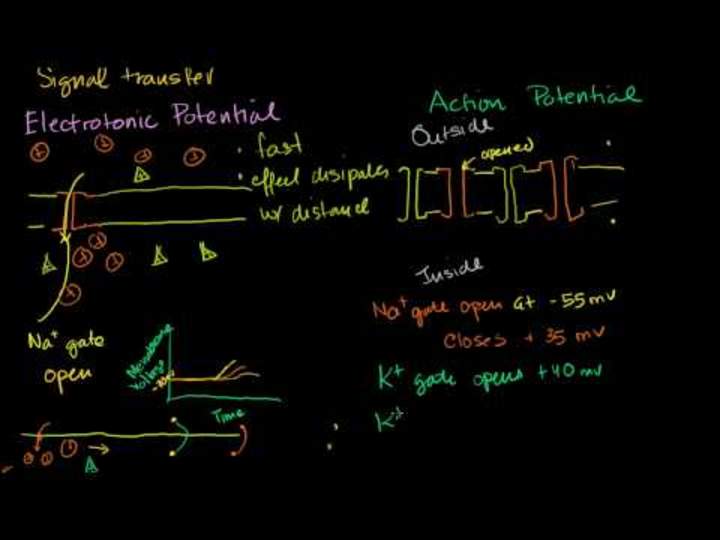 Signal transfer
Electrotonic Potential
• fast
• effect disipates
w/ distance
Na+ gate
open
Membrane
Voltage
Time
Action Potential
Outside
opened
Inside
Na+ gate open at -55mv
Closes + 35 mv
K+ gate opens +40 mv
K+